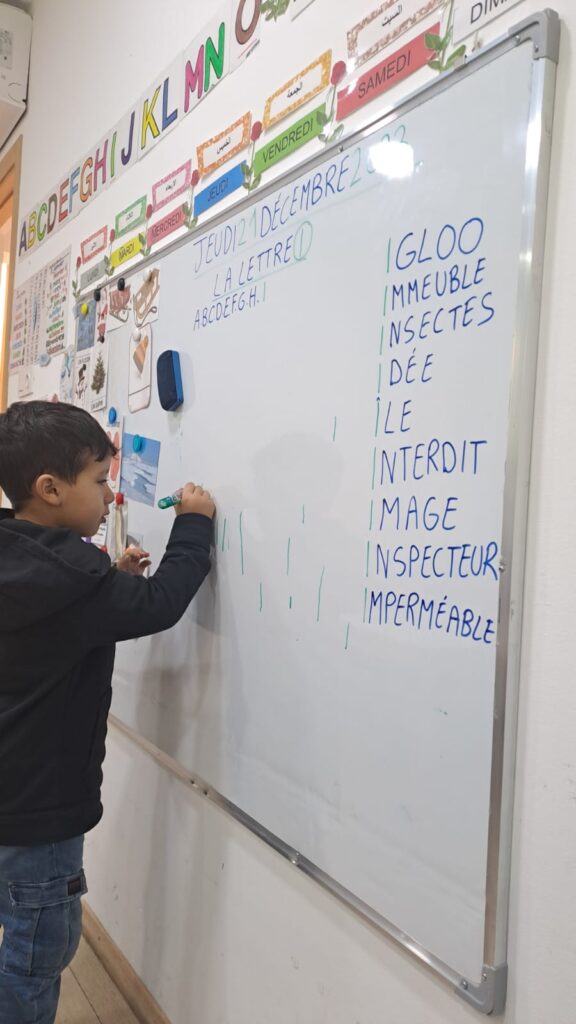 ABCDEFGHIJKLMNO
الأربعاء الخميس الجمعة السبت
MARDI MERCREDI JEUDI VENDREDI SAMEDI
JEUDI 21 DÉCEMBRE 2023
LA LETTRE I
ABCDEFGH.I
IGLOO
IMMEUBLE
INSECTES
IDÉE
ÎLE
INTERDIT
IMAGE
INSPECTEUR
IMPERMÉABLE